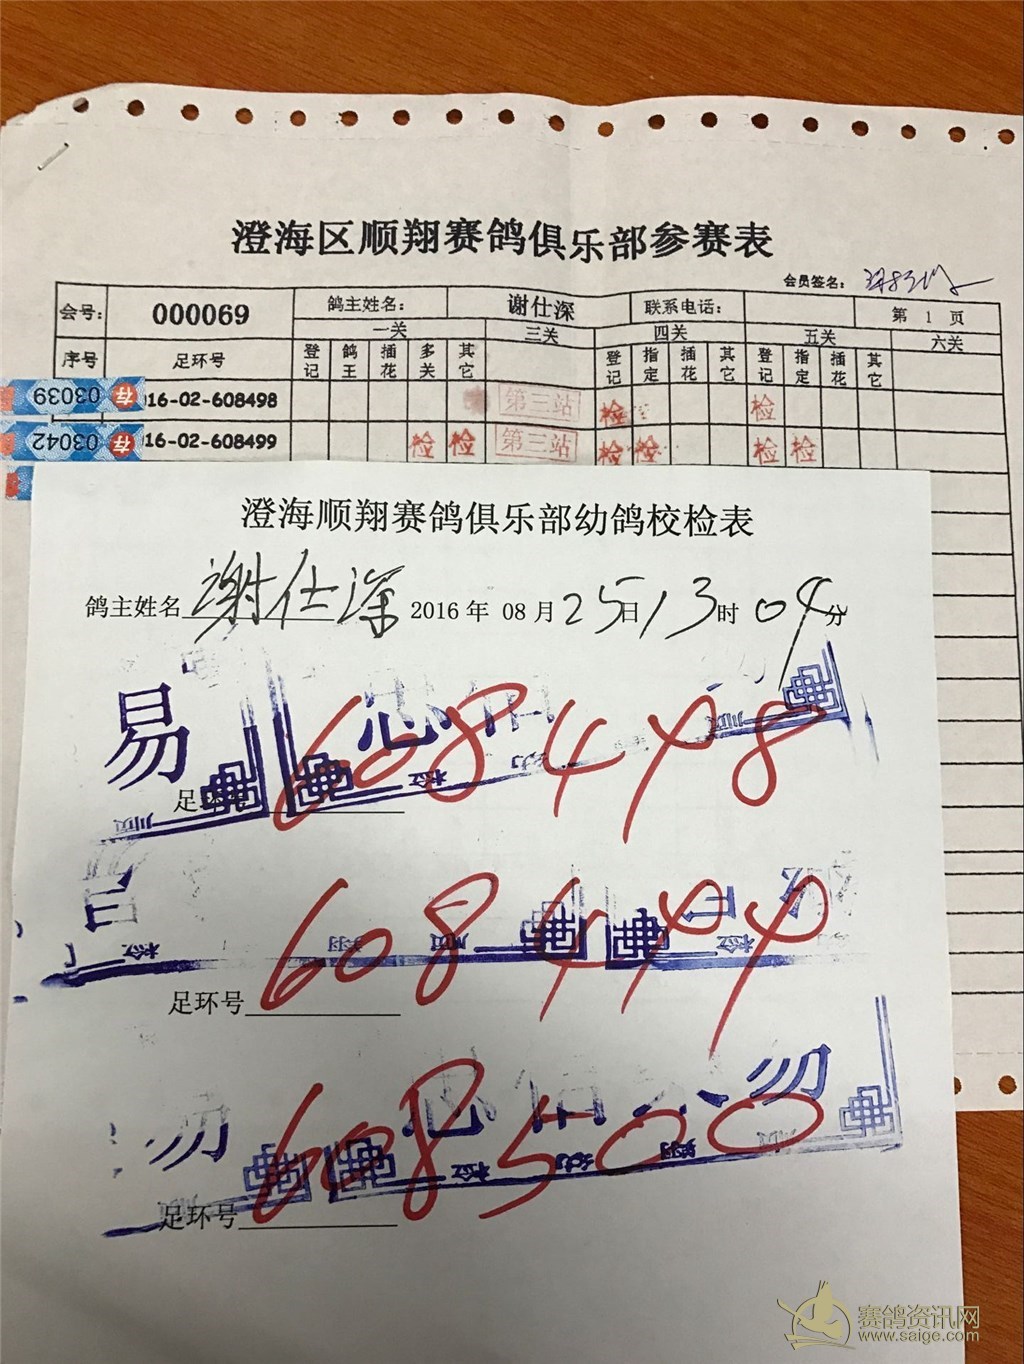 澄海区顺翔赛鸽俱乐部参赛表
会员签名:
会号: 000069 鸽主姓名: 谢仕深 联系电话: 第 1 页
一关 三关 四关 五关 六关
序号 足环号 登记 鸽王 插花 多关 其它 登记 指定 插花 其它 登记 指定 插花 其它
03039 存 16-02-608498 第三站 检 检
03042 存 16-02-608499 检 检 第三站 检 检 检 检
澄海顺翔赛鸽俱乐部幼鸽校检表
鸽主姓名 谢仕深 2016年 08月25日13时04分
易
足环号 608498
足环号 608499
足环号 608500
赛鸽资讯网
www.saige.com